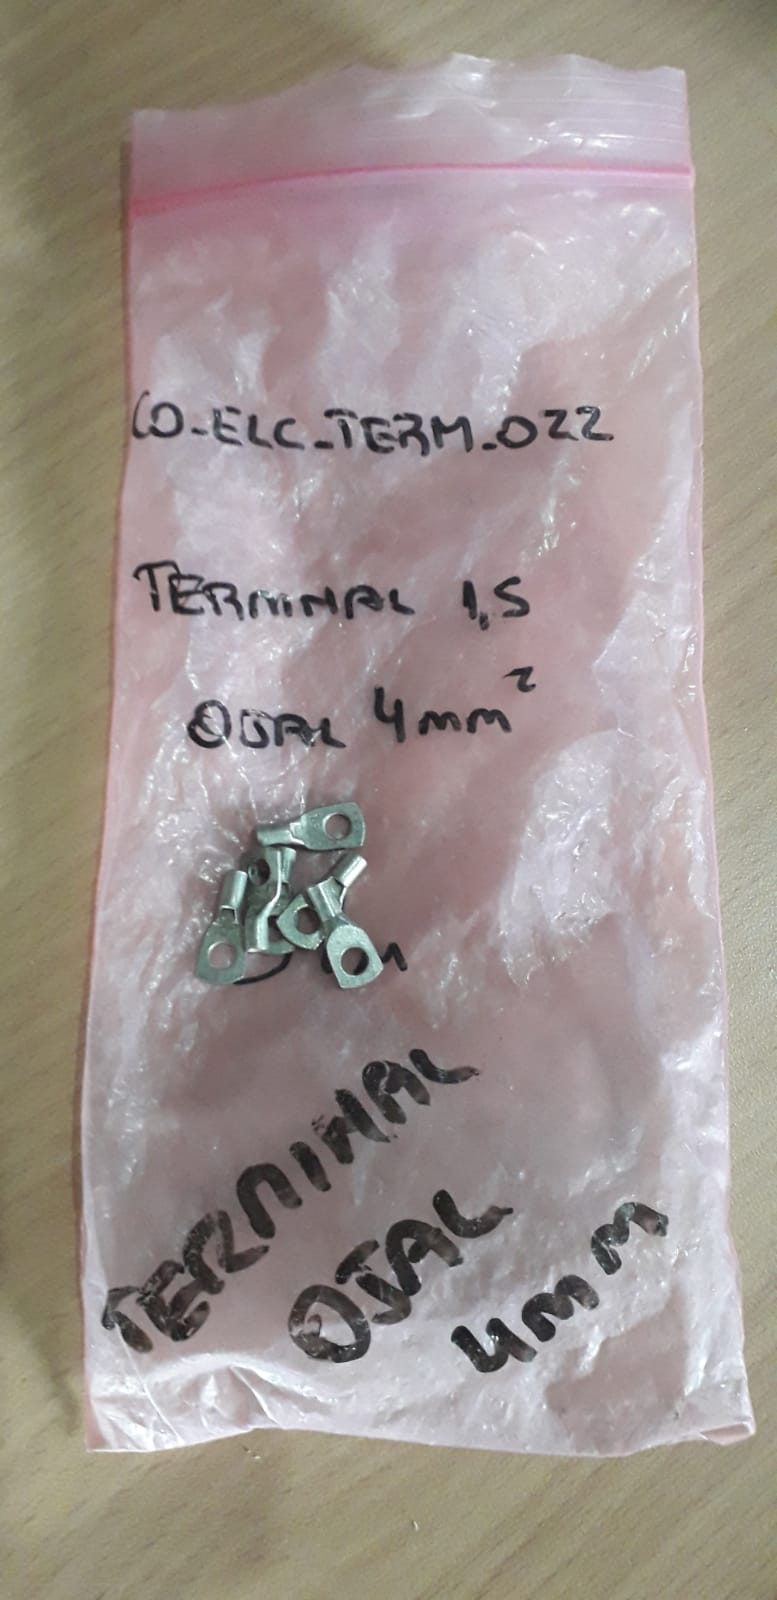 CO-ELC-TERM-022
TERMINAL 1,5
OJAL 4mm²
TERMINAL
OJAL
4MM